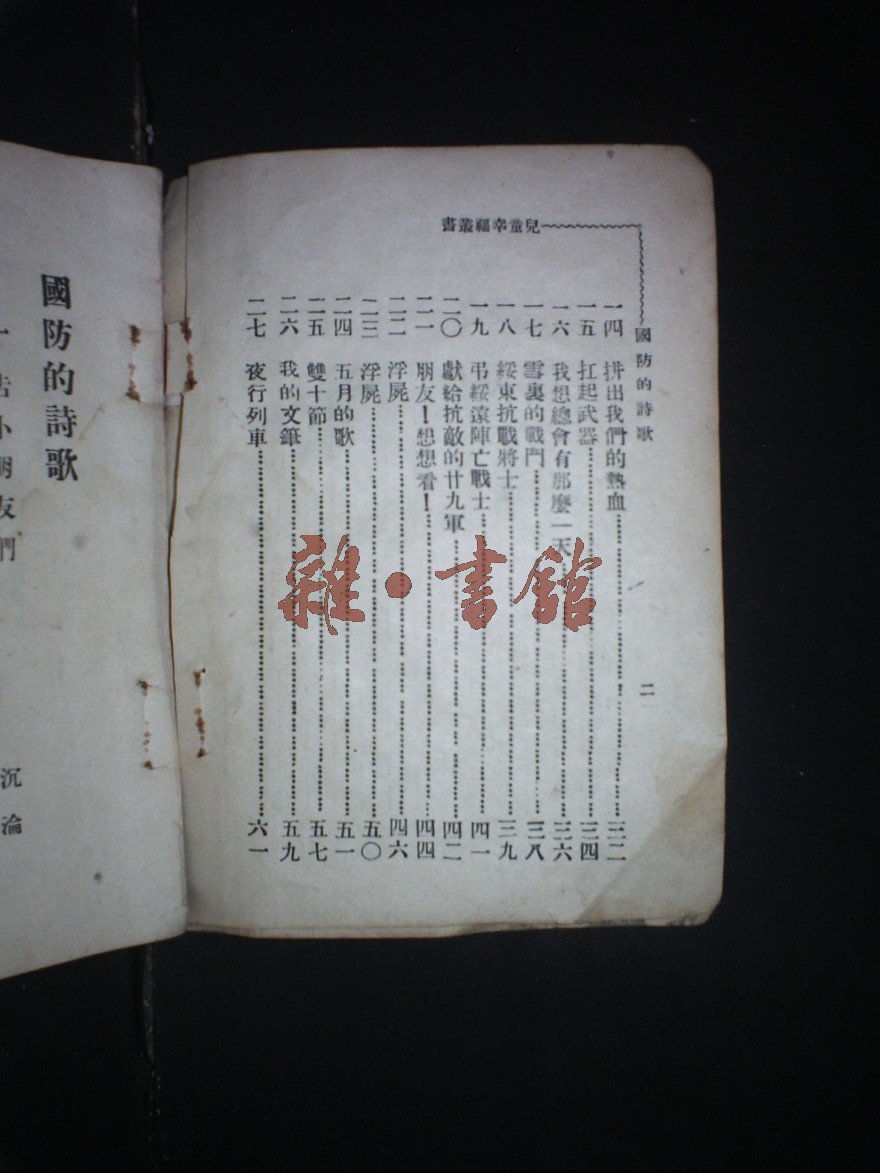 兒童幸福叢書
國防的詩歌
二
一四 拼出我們的熱血 三二
一五 扛起武器 三四
一六 我想總會有那麼一天 三六
一七 雪裏的戰鬥 三八
一八 綏東抗戰將士 三九
一九 弔綏遠陣亡戰士 四一
二〇 獻給抗敵的廿九軍 四二
二一 朋友！想想看！ 四四
二二 浮屍 四六
二三 浮屍 五〇
二四 五月的歌 五一
二五 雙十節 五七
二六 我的文筆 五九
二七 夜行列車 六一
國防的詩歌
小朋友們
沉淪
雜·書館